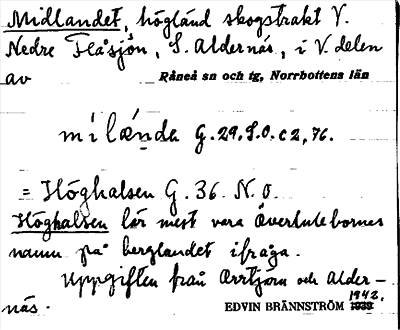 Midlandet, högländ skogstrakt V.
Nedre Flåsjön, S. Aldernäs, i V. delen
av Råneå sn och tg, Norrbottens län
mílænda G.29.S.O.c2,76.
= Höghalsen G.36.N.O.
Höghalsen lär mest vara Överlulebornes
namn på berglandet ifråga.
Uppgiften från Orrtjärn och Alder-
näs.
EDVIN BRÄNNSTRÖM 1942.